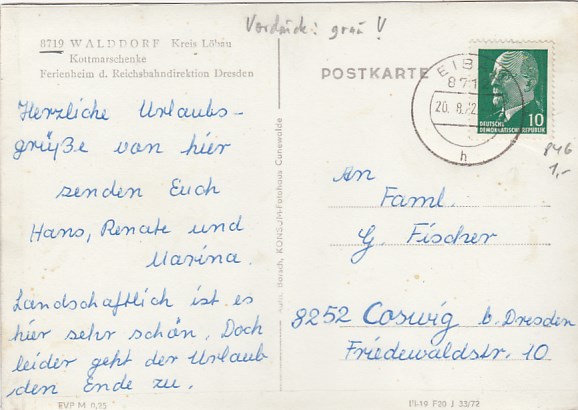 Vordruck: grau!
8719 WALDDORF Kreis Löbau
Kottmarschenke
Ferienheim d. Reichsbahndirektion Dresden
Herzliche Urlaubs-
grüße von hier
senden Euch
Hans, Renate und
Marina.
Landschaftlich ist es
hier sehr schön. Doch
leider geht der Urlaub
den Ende zu.
EVP M 0,25
Borsch, KONSUM-Fotohaus Cunewalde
POSTKARTE
EIB
871
20. 8. 72
h
10
DEUTSCHE
DEMOKRATISCHE REPUBLIK
P46
1,-
An
Faml.
G. Fischer
8252 Coswig b. Dresden
Friedewaldstr. 10
III-19 F20 J 33/72